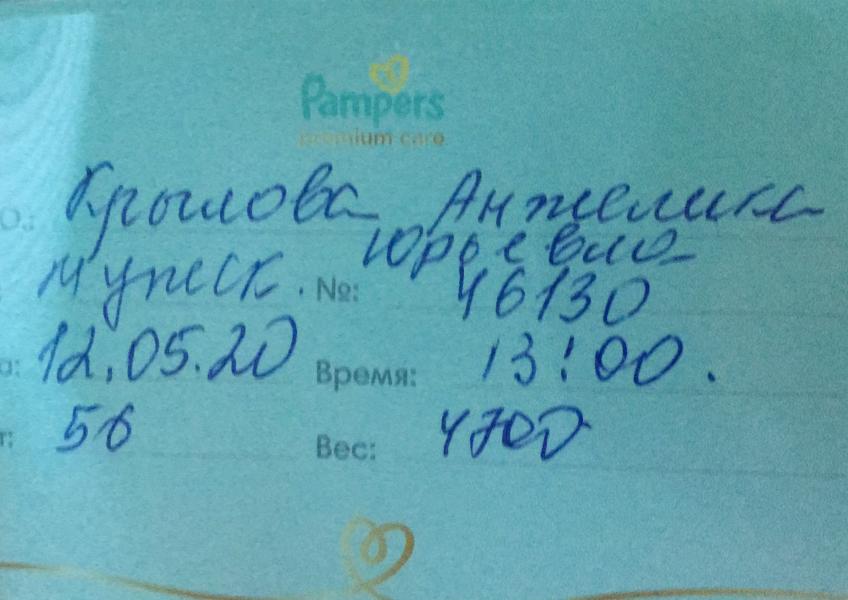 Pampers
premium care
О.: Крылова Анжелика
Юрьевна
мужск. №: 46130
а: 12.05.20 Время: 13:00.
т: 56 Вес: 4700